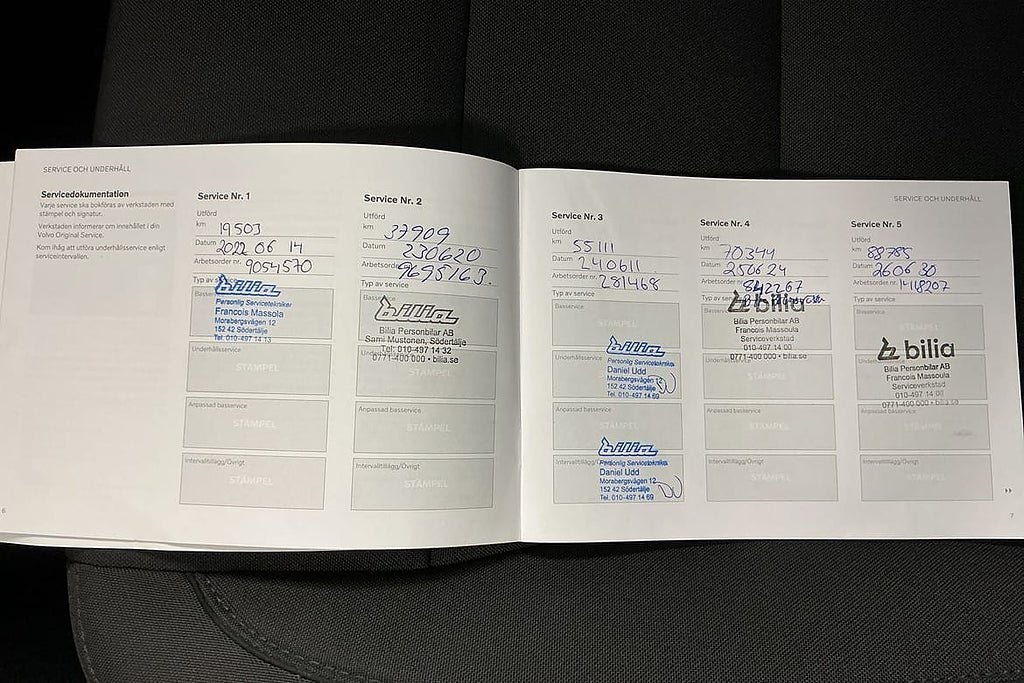 SERVICE OCH UNDERHÅLL
Servicedokumentation
Varje service ska bokföras av verkstaden med
stämpel och signatur.
Verkstaden informerar om innehållet i din
Volvo Original Service.
Kom ihåg att utföra underhållsservice enligt
serviceintervallen.
6
Service Nr. 1
Utförd
km 19503
Datum 2022 06 14
Arbetsorder nr. 9054570
Typ av service
bilia
Personlig Servicetekniker
Francois Massola
Morabergsvägen 12
152 42 Södertälje
Tel. 010-497 14 13
Underhållsservice
STÄMPEL
Anpassad basservice
STÄMPEL
Intervalltillägg/Övrigt
STÄMPEL
Service Nr. 2
Utförd
km 37909
Datum 230620
Arbetsorder 9695163.
Typ av service
bilia
Bilia Personbilar AB
Sami Mustonen, Södertälje
Tel: 010-497 14 32
0771-400 000 • bilia.se
Underhållsservice
STÄMPEL
Anpassad basservice
STÄMPEL
Intervalltillägg/Övrigt
STÄMPEL
SERVICE OCH UNDERHÅLL
Service Nr. 3
Utförd
km 55111
Datum 240611
Arbetsorder nr. 281468
Typ av service
Basservice
STÄMPEL
Underhållsservice
bilia
Personlig Servicetekniker
Daniel Udd
Morabergsvägen 12
152 42 Södertälje
Tel. 010-497 14 69
DU
Anpassad basservice
Intervalltillägg/Övrigt
bilia
Personlig Servicetekniker
Daniel Udd
Morabergsvägen 12
152 42 Södertälje
Tel. 010-497 14 69
DU
Service Nr. 4
Utförd
km 70344
Datum 250624
Arbetsorder nr. 842267
Typ av service
bilia
Bilia Personbilar AB
Francois Massoula
Serviceverkstad
010-497 14 00
0771-400 000 • bilia.se
Underhållsservice
STÄMPEL
Anpassad basservice
STÄMPEL
Intervalltillägg/Övrigt
STÄMPEL
Service Nr. 5
Utförd
km 88785
Datum 260630
Arbetsorder nr. 1418207
Typ av service
Basservice
STÄMPEL
bilia
Bilia Personbilar AB
Francois Massoula
Serviceverkstad
010-497 14 00
0771-400 000 • bilia.se
Anpassad basservice
STÄMPEL
Intervalltillägg/Övrigt
STÄMPEL
7